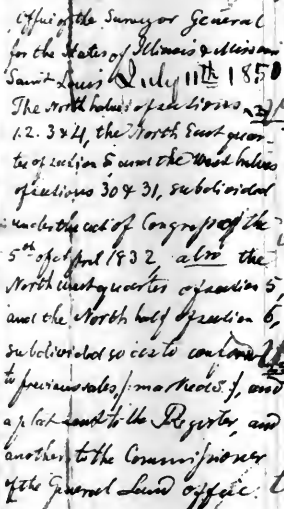 Office of the Surveyor General
for the States of Illinois & Missouri
Saint Louis July 11th 1850
The North halves of sections
1. 2. 3 & 4, the North East quar
ter of section 5 and the West halves
of sections 30 & 31, subdivided
under the act of Congress of the
5th of April 1832, also the
North west quarter of section 5,
and the North half of section 6,
subdivided so as to conform
to previous sales, /: marked S :/, and
a plat sent to the Register, and
another to the Commissioner
of the General Land office.